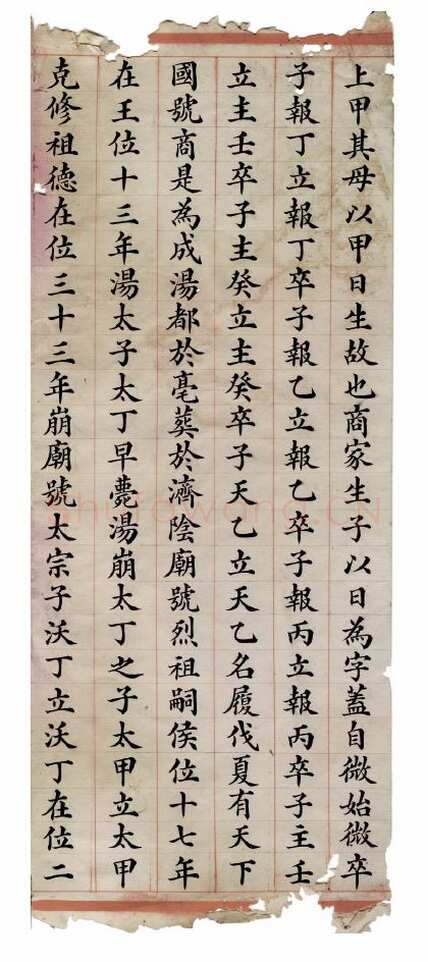 上甲其母以甲日生故也商家生子以日為字蓋自微始微卒
子報丁立報丁卒子報乙立報乙卒子報丙立報丙卒子主壬
立主壬卒子主癸立主癸卒子天乙立天乙名履伐夏有天下
國號商是為成湯都於亳葬於濟陰廟號烈祖嗣侯位十七年
在王位十三年湯太子太丁早薨湯崩太丁之子太甲立太甲
克修祖德在位三十三年崩廟號太宗子沃丁立沃丁在位二